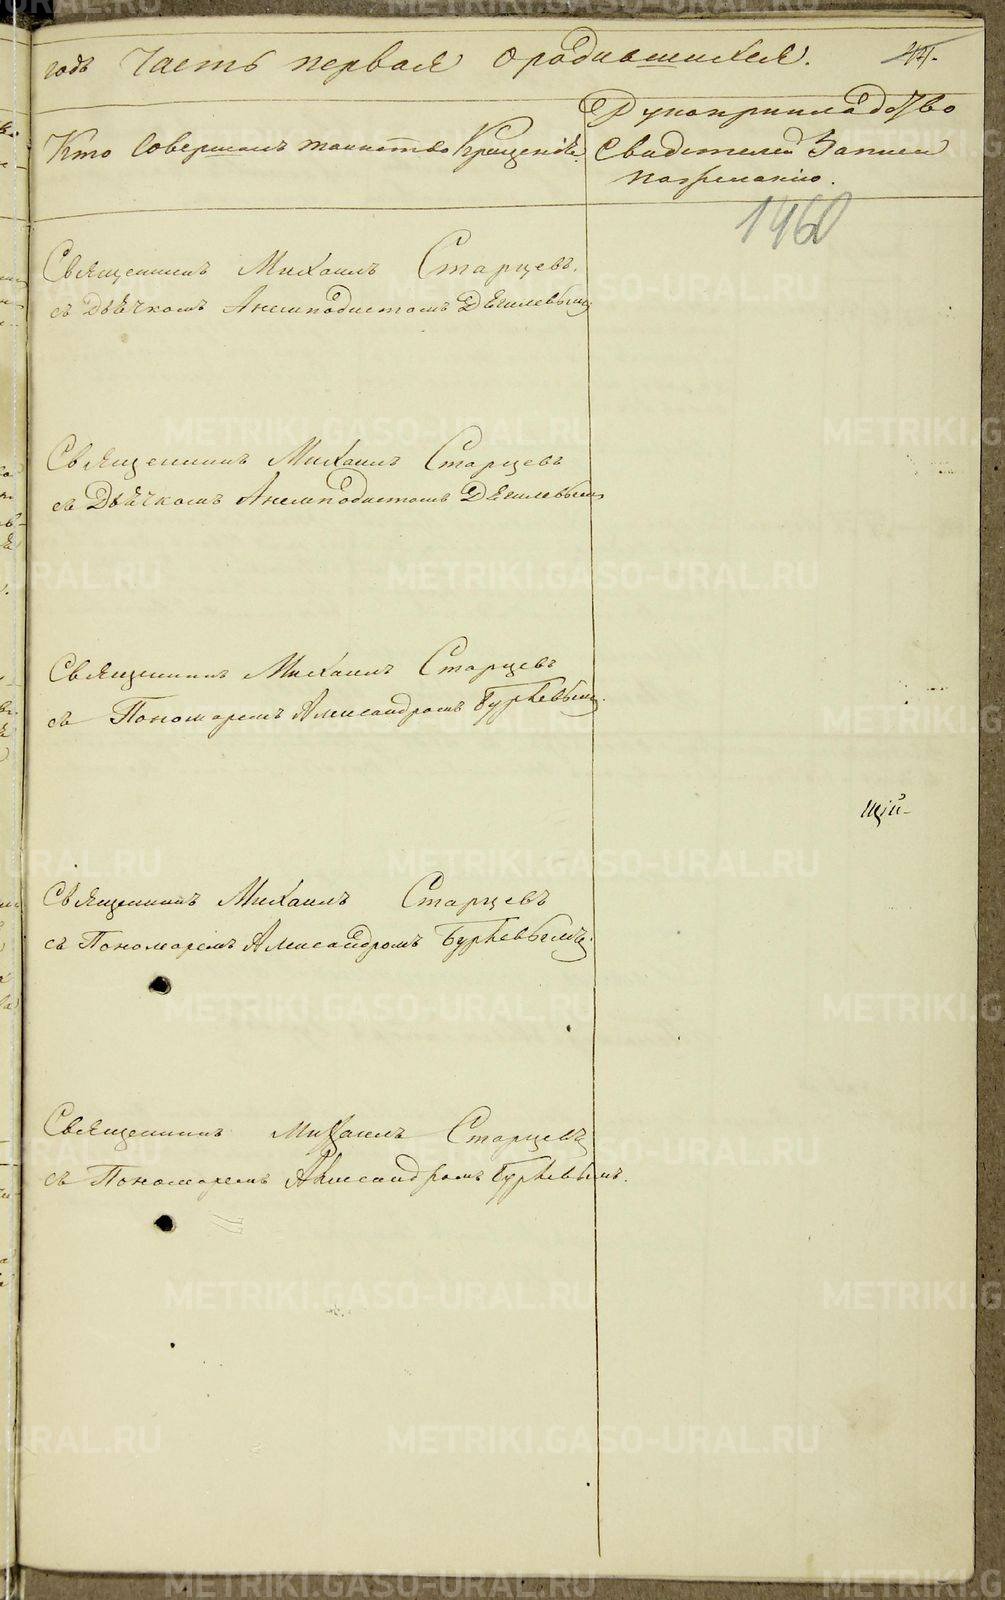 годъ Часть первая о родившихся. 44.
Кто совершалъ таинство Крещенія.
Рукоприкладство
Свидѣтелей Записи
пожеланію.
1460
Священникъ Михаилъ Старцевъ.
съ Дьячкомъ Анемподистомъ Дягилевымъ
Священникъ Михаилъ Старцевъ
съ Дьячкомъ Анемподистомъ Дягилевымъ
Священникъ Михаилъ Старцевъ
съ Пономаремъ Александромъ Бурхевымъ.
щій-
Священникъ Михаилъ Старцевъ
съ Пономаремъ Александромъ Бурхевымъ.
Священникъ Михаилъ Старцевъ
съ Пономаремъ Александромъ Бурхевымъ.
METRIKI.GASO-URAL.RU